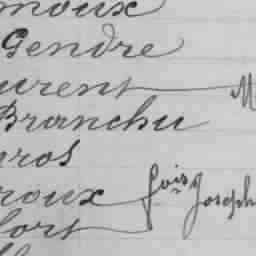 moux
Gendre
urent M
Branchu
uros
roux fois Joseph
fort